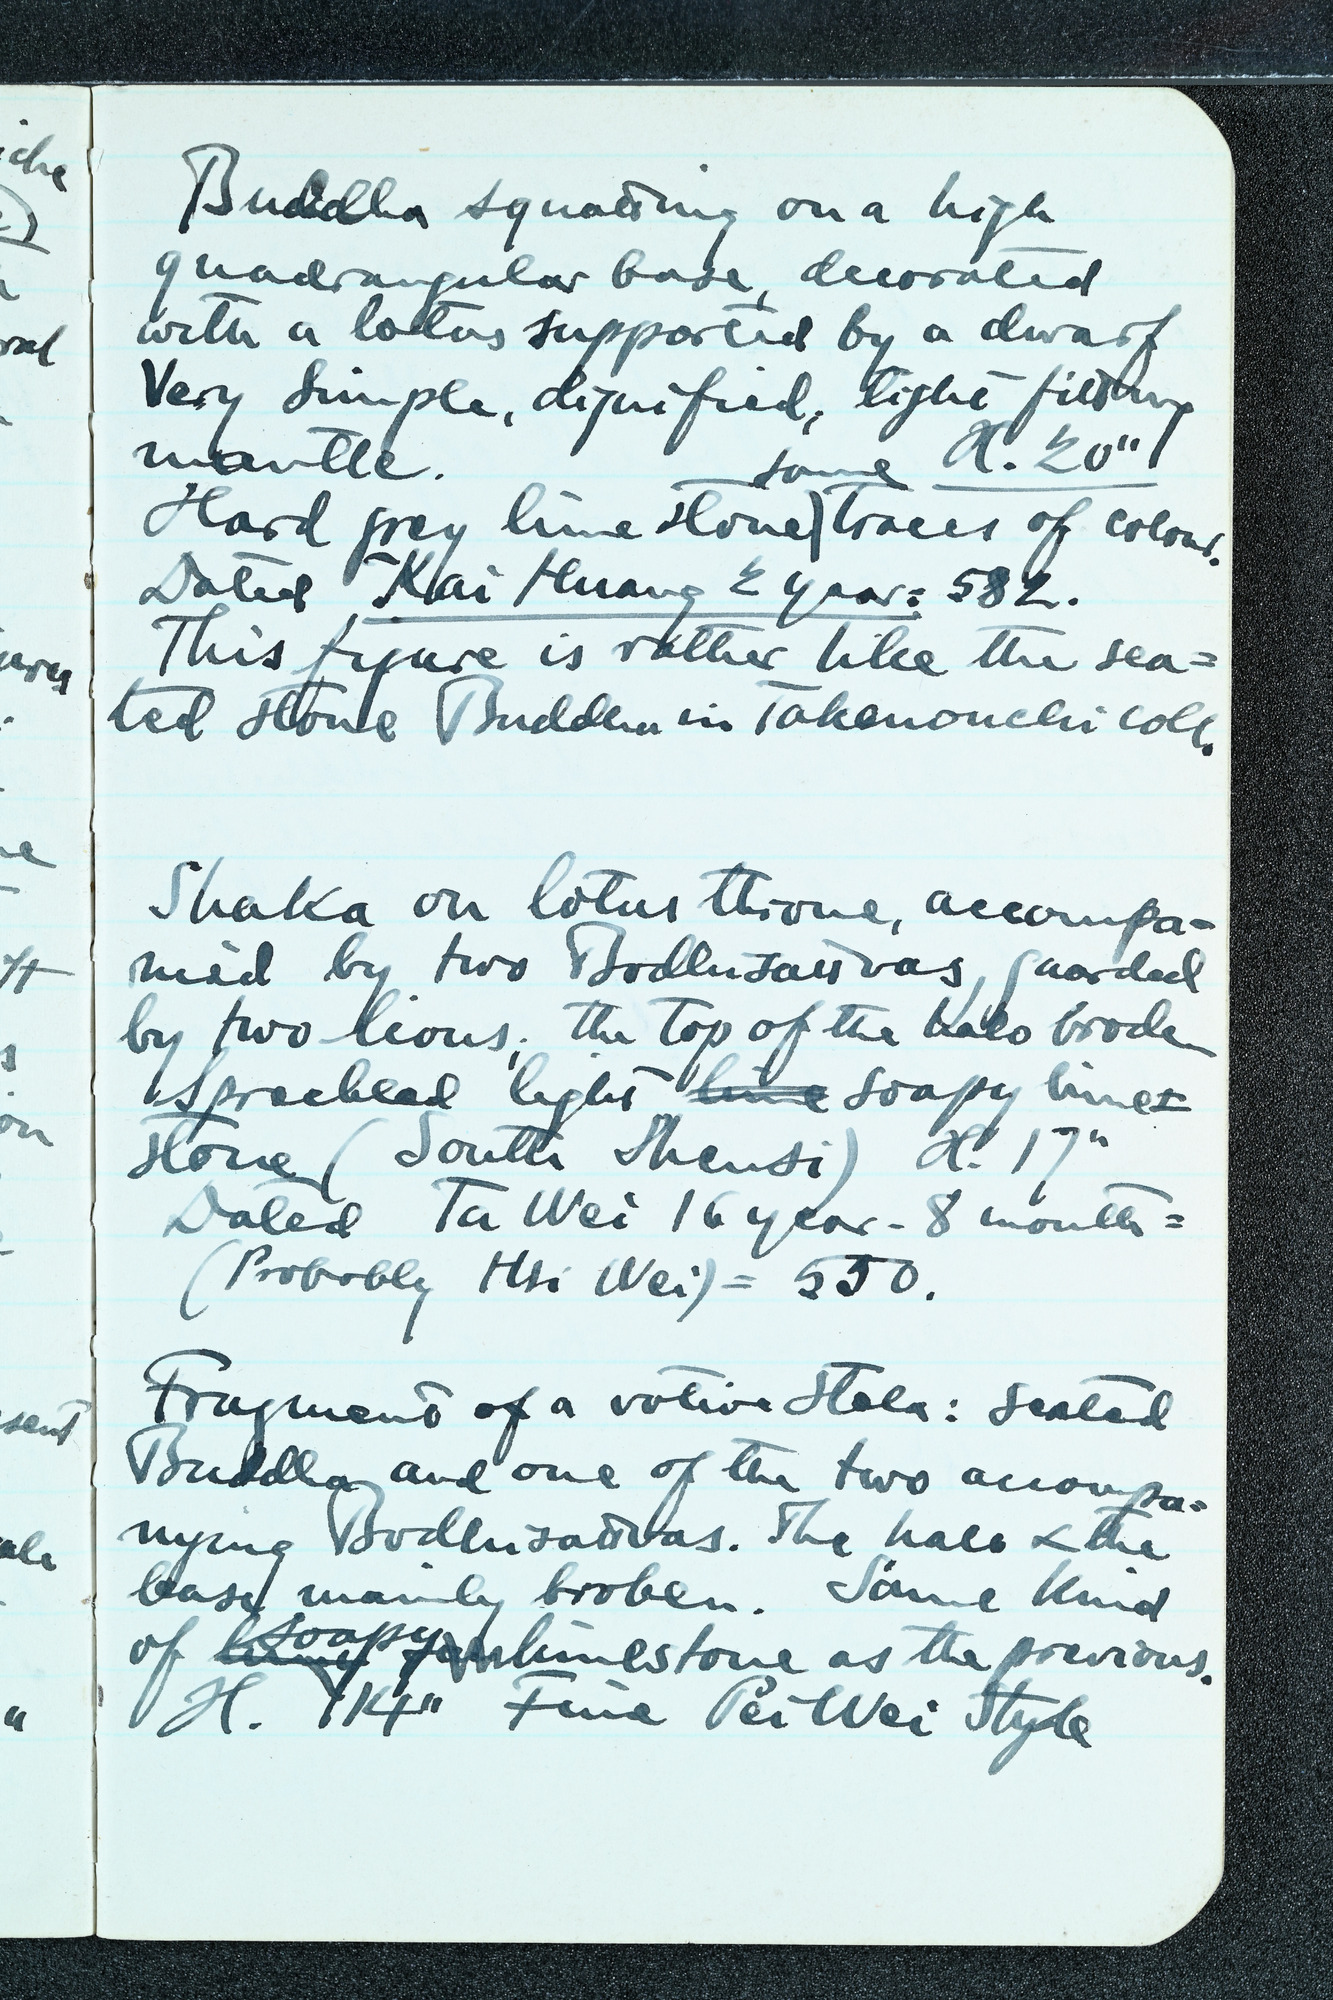 Buddha squatting on a high
quadrangular base, decorated
with a lotus supported by a dwarf
Very simple, dignified, tight fitting
mantle. H. 20"
some
Hard grey lime stone) traces of colour.
Dated Kai Huang 2 year = 582.
This figure is rather like the sea=
ted stone Buddha in Takenouchi coll.
Shaka on lotus throne, accompa=
nied by two Bodhisattvas, guarded
by two lions; the top of the halo broken
light lime soapy lime=
stone (South Shensi) H. 17"
Dated Ta Wei 16 year - 8 month =
(Probably Hsi Wei) = 550.
Fragment of a votive stela: seated
Buddha and one of the two accompa=
nying Bodhisattvas. The halo & the
base mainly broken. Same kind
of soapy limestone as the previous.
H. 14" Fine Pei Wei Style